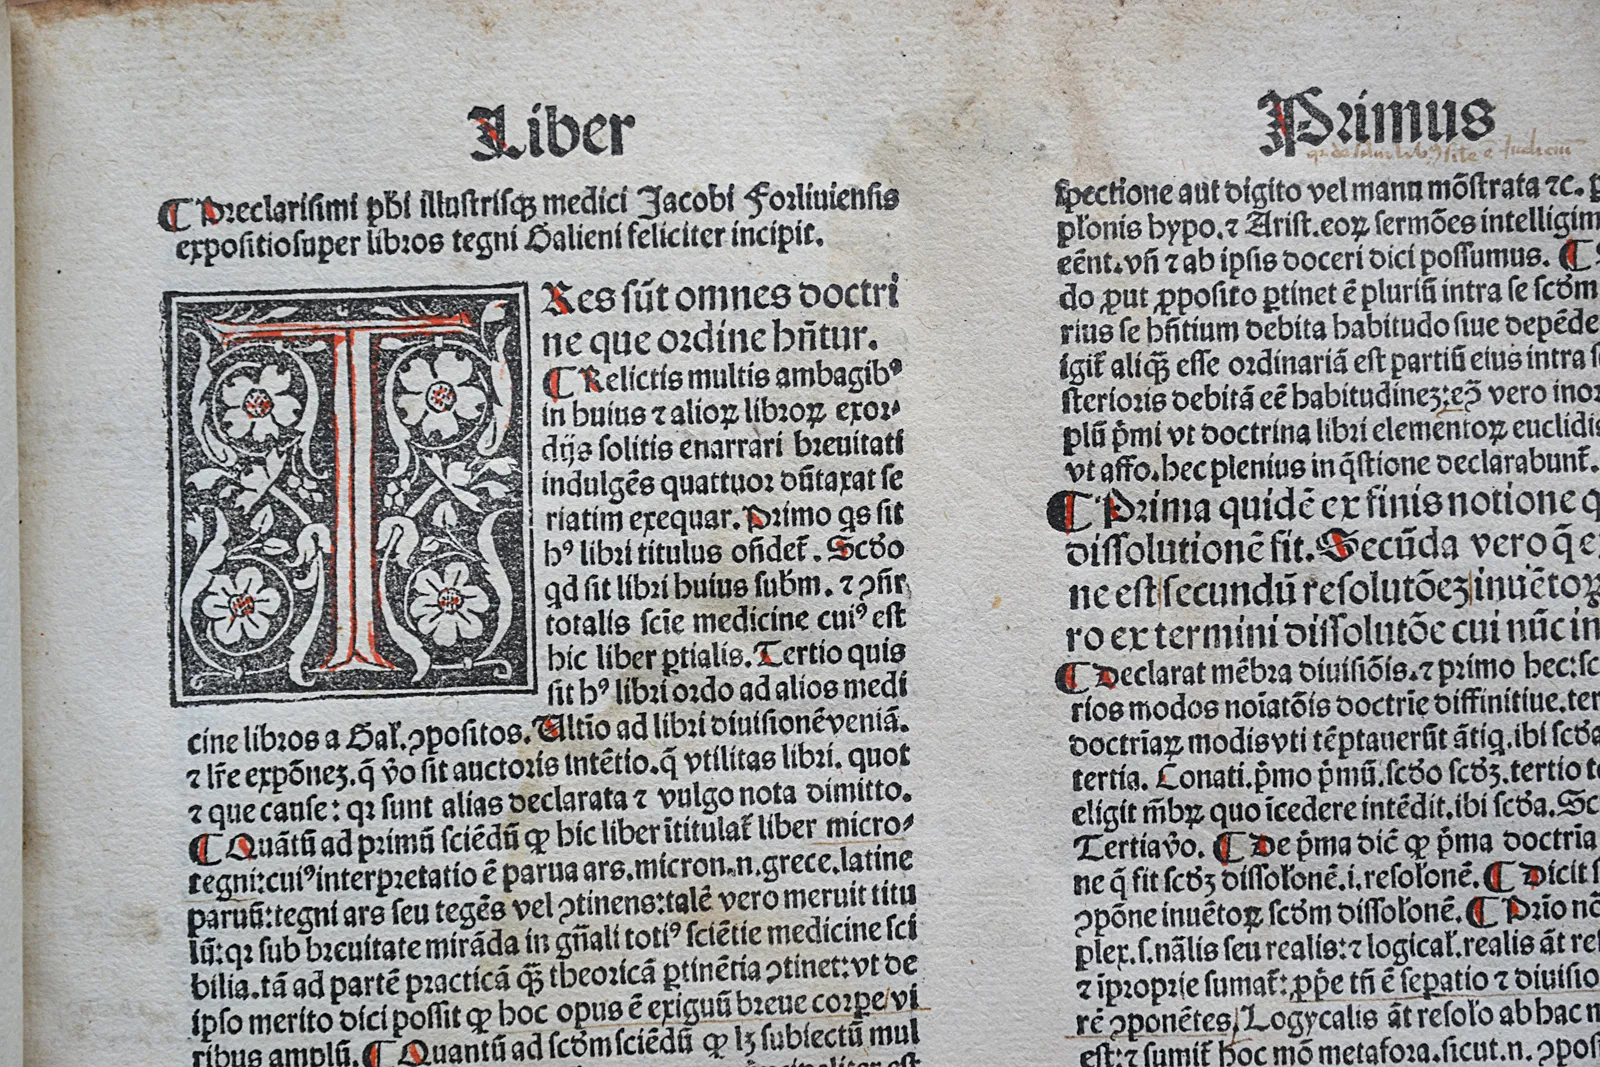 Liber
Primus
¶ Preclarisimi phi illustrisqꝫ medici Jacobi Forliuiensis
expositiosuper libros tegni Galieni feliciter incipit.
TRes sūt omnes doctri
ne que ordine hñtur.
¶ Relictis multis ambagibꝰ
in huius ⁊ alioꝝ libroꝝ exor⸗
dijs solitis enarrari breuitati
indulgēs quattuor dūtaxat se
riatim exequar. Primo qs sit
hꝰ libri titulus oñdet᷑. Scđo
qd sit libri huius subm. ⁊ ꝯñr
totalis scīe medicine cuiꝰ est
hic liber ꝑtialis. Tertio quis
sit hꝰ libri ordo ad alios medi
cine libros a Gal̄. ꝯpositos. Ultīo ad libri diuisionē veniā.
⁊ lr̄e expōneꝫ. q̄ v̄o sit auctoris intētio. q̄ vtilitas libri. quot
⁊ que cause: qꝛ sunt alias declarata ⁊ vulgo nota dimitto.
¶ Quātū ad primū sciēdū ꝙ hic liber ītitulat᷑ liber micro⸗
tegni: cuiꝰ interpretatio ē parua ars. micron. n. grece. latine
paruū: tegni ars seu tegēs vel ꝯtinens: talē vero meruit titu
lū: qꝛ sub breuitate mirāda in gn̄ali totiꝰ sciētie medicine sci
bilia. tā ad partē practicā qꝫ̄ theoricā ꝑtinētia ꝯtinet: vt de
ipso merito dici possit ꝙ hoc opus ē exiguū breue corpe/ vi
ribus amplū. ¶ Quantū ad scđm sciēdū ꝙ lꝫ subiectū mul
spectione aut digito vel manu mōstrata ⁊c.
pl̄onis hypo. ⁊ Arist. eoꝝ sermōes intelligim
eēnt. vñ ⁊ ab ipsis doceri dici possumus. ¶
do ꝓut ꝓposito ꝑtinet ē pluriū intra se scđm
rius se hñtium debita habitudo siue depēde
igit᷑ aliqꝫ̄ esse ordinariā est partiū eius intra
sterioris debitā eē habitudineꝫ: eꝯ̄ vero inor
plū p̄mi vt doctrina libri elementoꝝ euclidis
vt affo. hec plenius in q̄stione declarabunt᷑.
¶ Prima quidē ex finis notione q
dissolutionē fit. Secūda vero q̄ e
ne est secundū resolutōeꝫ inuētoꝝ
ro ex termini dissolutōe cui nūc in
¶ Declarat mēbra diuisiōis. ⁊ primo hec: sc
rios modos noīatōis doctrie diffinitiue. ter
doctrīaꝝ modis vti tēptauerūt ātiq. ibi scđa
tertia. Conati. p̄mo p̄mū. scđo scđꝫ. tertio
eligit m̄bꝝ quo īcedere intēdit. ibi scđa. Sc
Tertia v̄o. ¶ De p̄ma dic̄ ꝙ p̄ma doctrīa
ne q̄ fit scđꝫ dissol̄onē. i. resol̄onē. ¶ Dicit
ꝯpōne inuētoꝝ scđm dissol̄onē. ¶ Prīo nō
plex. s. nālis seu realis: ⁊ logical᷑. realis āt
⁊ īproprie sumat᷑: ꝓp̄e tñ ē sepatio ⁊ diuisio
rē ꝯponētes/ Logycalis āt resol̄o ab hac
est: ⁊ sumit᷑ hoc mō metafora. sicut. n. ꝯpos